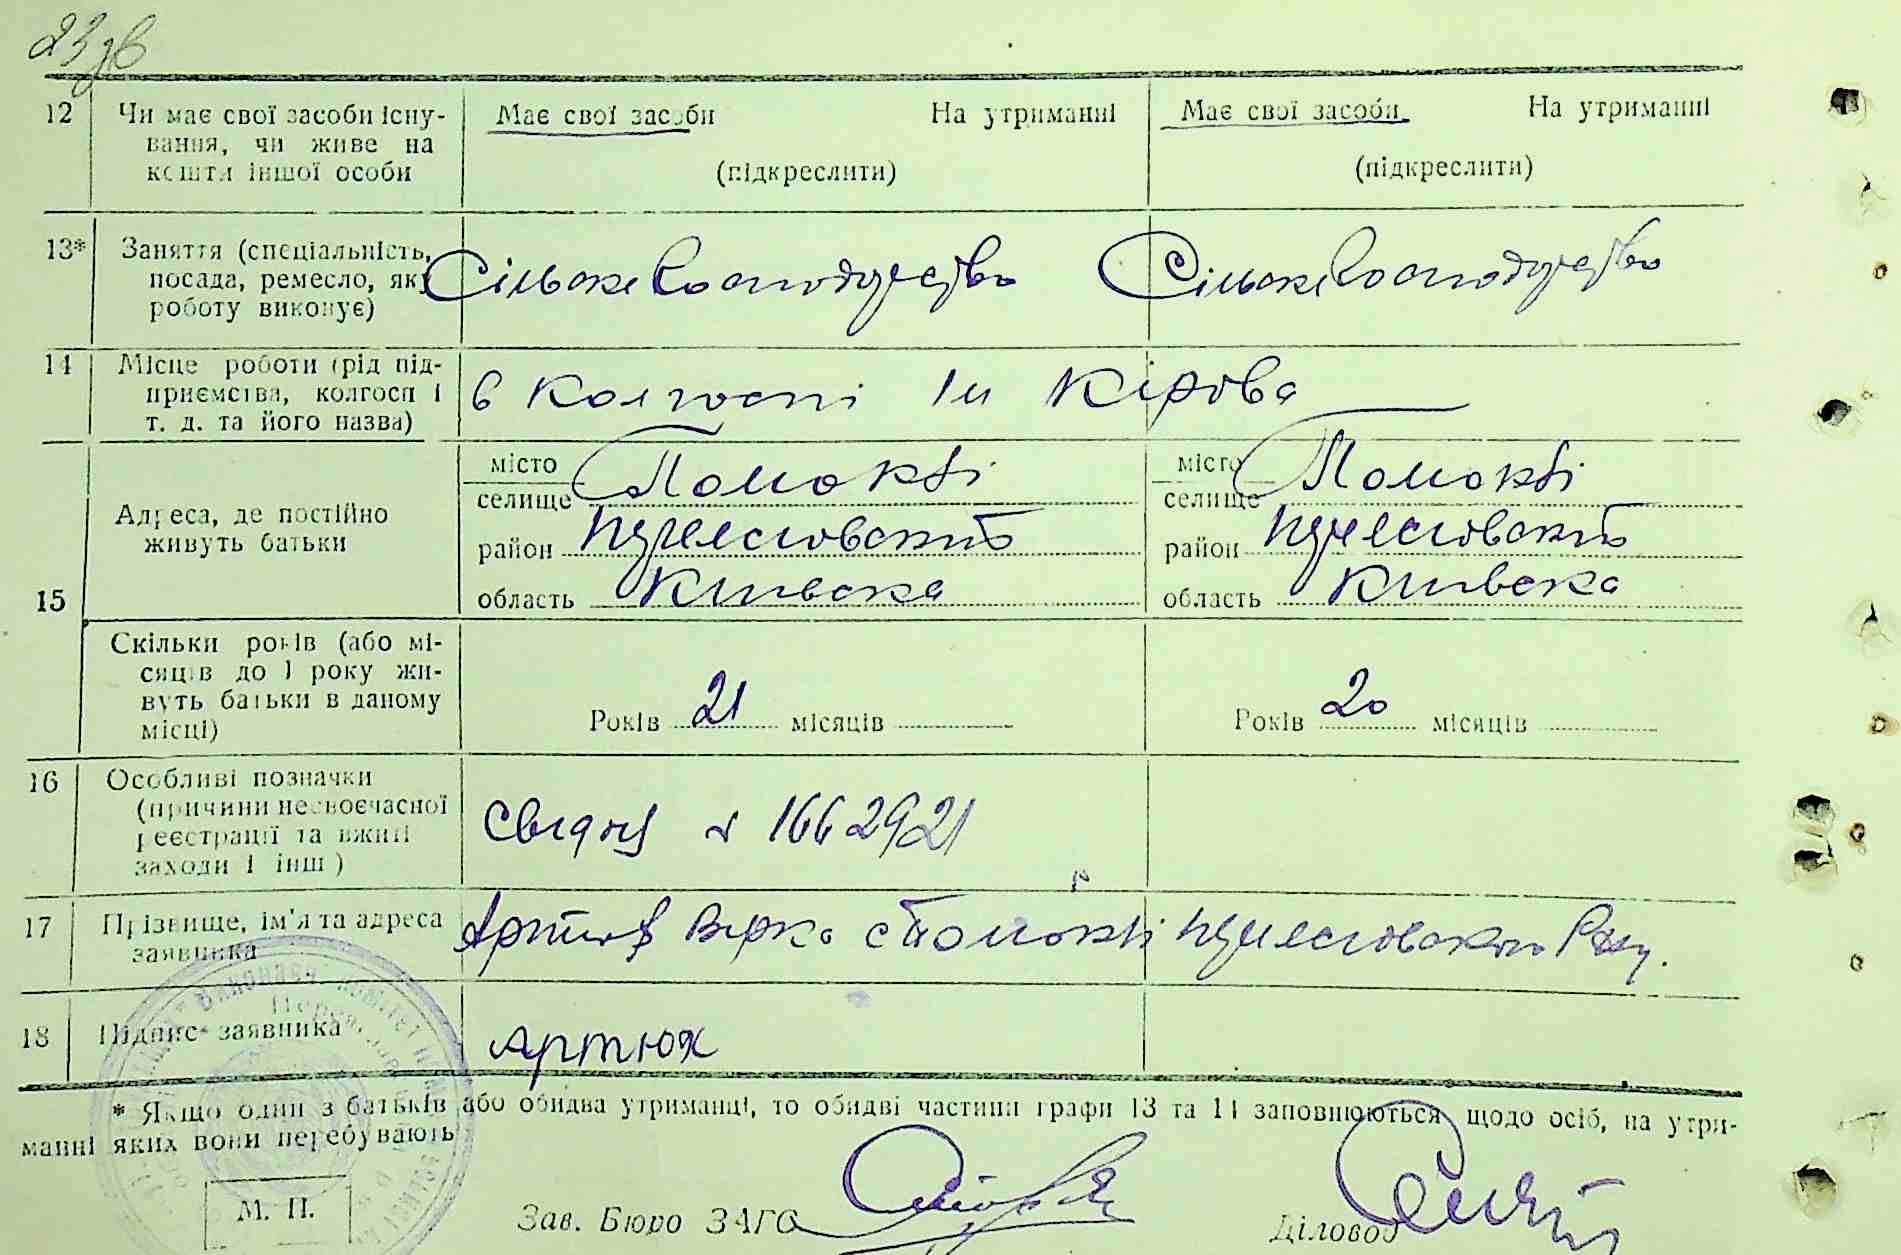 23 зв
12 Чи має свої засоби існу- Має свої засоби На утриманні Має свої засоби На утриманні
вання, чи живе на
кошти іншої особи (підкреслити) (підкреслити)
13* Заняття (спеціальність,
посада, ремесло, яку Сільське Господарство Сільське Господарство
роботу виконує)
14 Місце роботи (рід під-
приємства, колгосп і в колгоспі ім Кірова
т. д. та його назва)
місто місто
селище Помоклі селище Помоклі
Адреса, де постійно
живуть батьки район область Київска район область Київска
15
Скільки років (або мі-
сяців до 1 року жи-
вуть батьки в даному
місці) Років 21 місяців Років 20 місяців
16 Особливі позначки
(причини несвоєчасної
реєстрації та вжиті № 1662921
заходи і інш)
17 Прізвище, ім'я та адреса
заявника Артюх с Помоклі
18 Підпис заявника Артюх
* Якщо один з батьків або обидва утриманці, то обидві частини графи 13 та 14 заповнюються щодо осіб, на утри-
манні яких вони перебувають
М. П.
Зав. Бюро ЗАГС Діловод